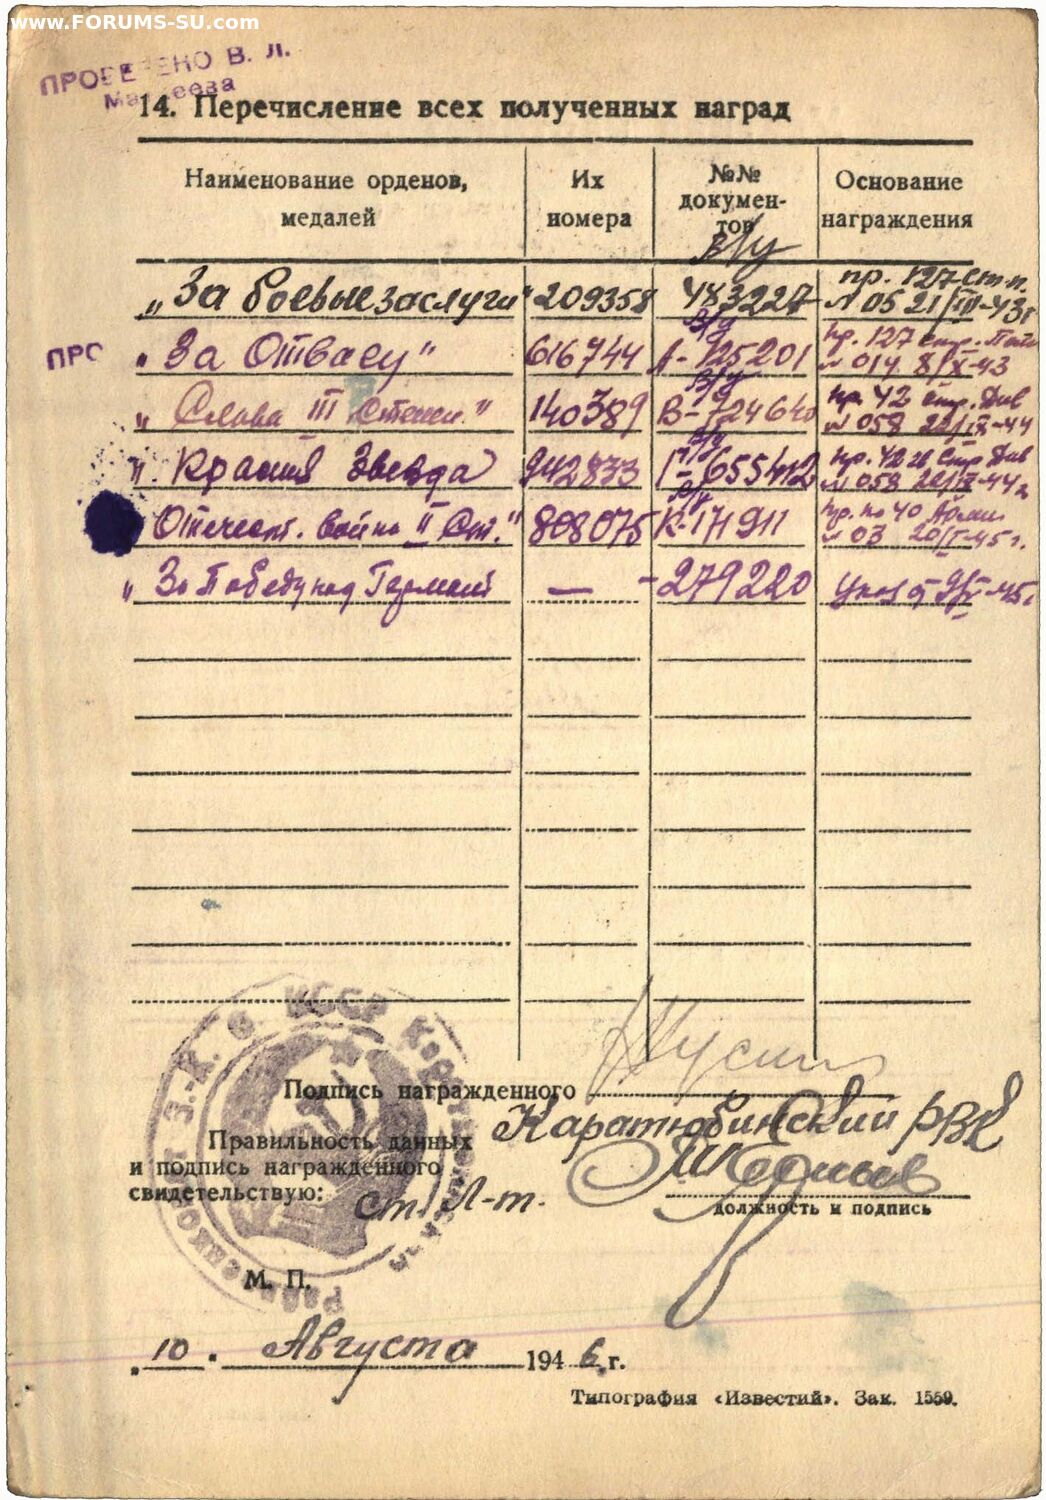 www.FORUMS-SU.com
В. Л.
14. Перечисление всех полученных наград
Наименование орденов, медалей
Их номера
№№ докумен-тов
Основание награждения
в/у
„За боевые заслуги“ 209358 483227 пр. 127 ст. п. N 05 21/III-43г
ПРО
„За Отвагу“ 616744 А-125201 пр. 127 стр. № 014 8/X-43
„Слава III Степени“ 140389 В-724640 пр. 42 стр. Див № 058 22/IX-44
„Красная Звезда 942833 Г-655412 пр. 42 гв Стр Див № 058 44г
Отечест. войны II Ст.“ 808075 К-171911 пр. по 40 Армии № 03 45г.
„За Победу над Германией — -279220 Указ от 9/V-45г
Подпись награжденного
Каратюбинский РВК
Правильность данных
и подпись награжденного
свидетельствую: ст. Л-т.
должность и подпись
М. П.
„10“ Августа 1946 г.
Типография «Известий». Зак. 1559.